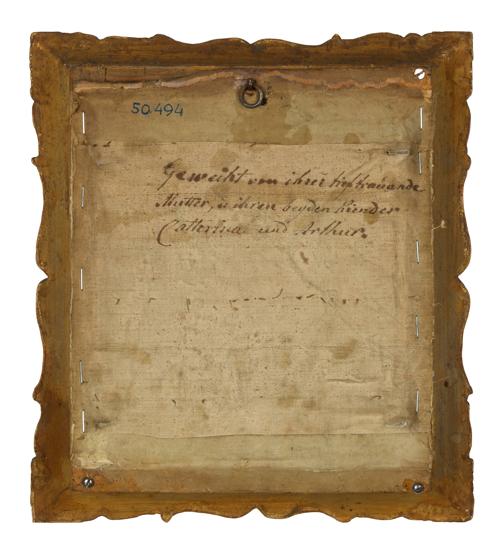 50.494
Geweiht von ihrer tieftrauande
Mutter, u ihren beyden Kinder
Catterina und Arthur.